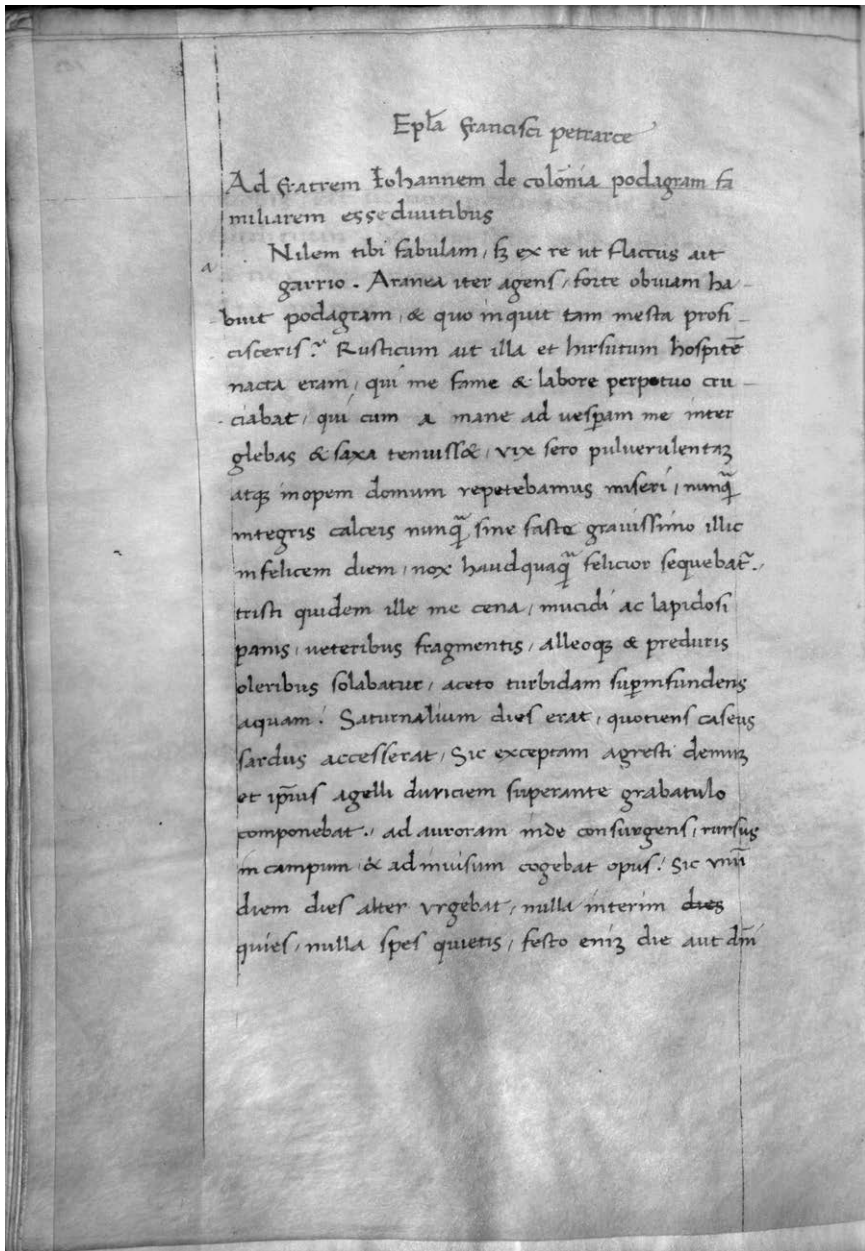 Ep̄la Francisci petrarce
Ad Fratrem Iohannem de colōnia podagram fa
miliarem esse divitibus
Nilem tibi fabulam, sꝫ ex re ut flaccus ait
a
garrio. Aranea iter agens, forte obviam ha-
buit podagram, & quo inquit tam mesta profi-
cisceris? Rusticum ait illa et hirsutum hospitē
nacta eram, qui me fame & labore perpetuo cru-
ciabat, qui cum a mane ad vesꝑam me inter
glebas & saxa tenuiss&, vix sero pulverulentaꝫ
atqꝫ inopem domum repetebamus miseri, nunq̄
integris calceis nunq̄ sine fasce gravissimo illic
infelicem diem, nox haudquaq̄ felicior sequebat᷑.
tristi quidem ille me cena, mucidi ac lapidosi
panis, veteribus fragmentis, alleoqꝫ & preduris
oleribus solabatur, aceto turbidam suꝑinfundens
aquam. Saturnalium dies erat, quotiens caseus
sardus accesserat, Sic exceptam agresti demuꝫ
et ip̄ius agelli duriciem superante grabatulo
componebat., ad auroram inde consurgens, rursus
in campum & ad invisum cogebat opus. Sic unū
diem dies alter urgebat, nulla interim dies
quies, nulla spes quietis, festo eniꝫ die aut dn̄i